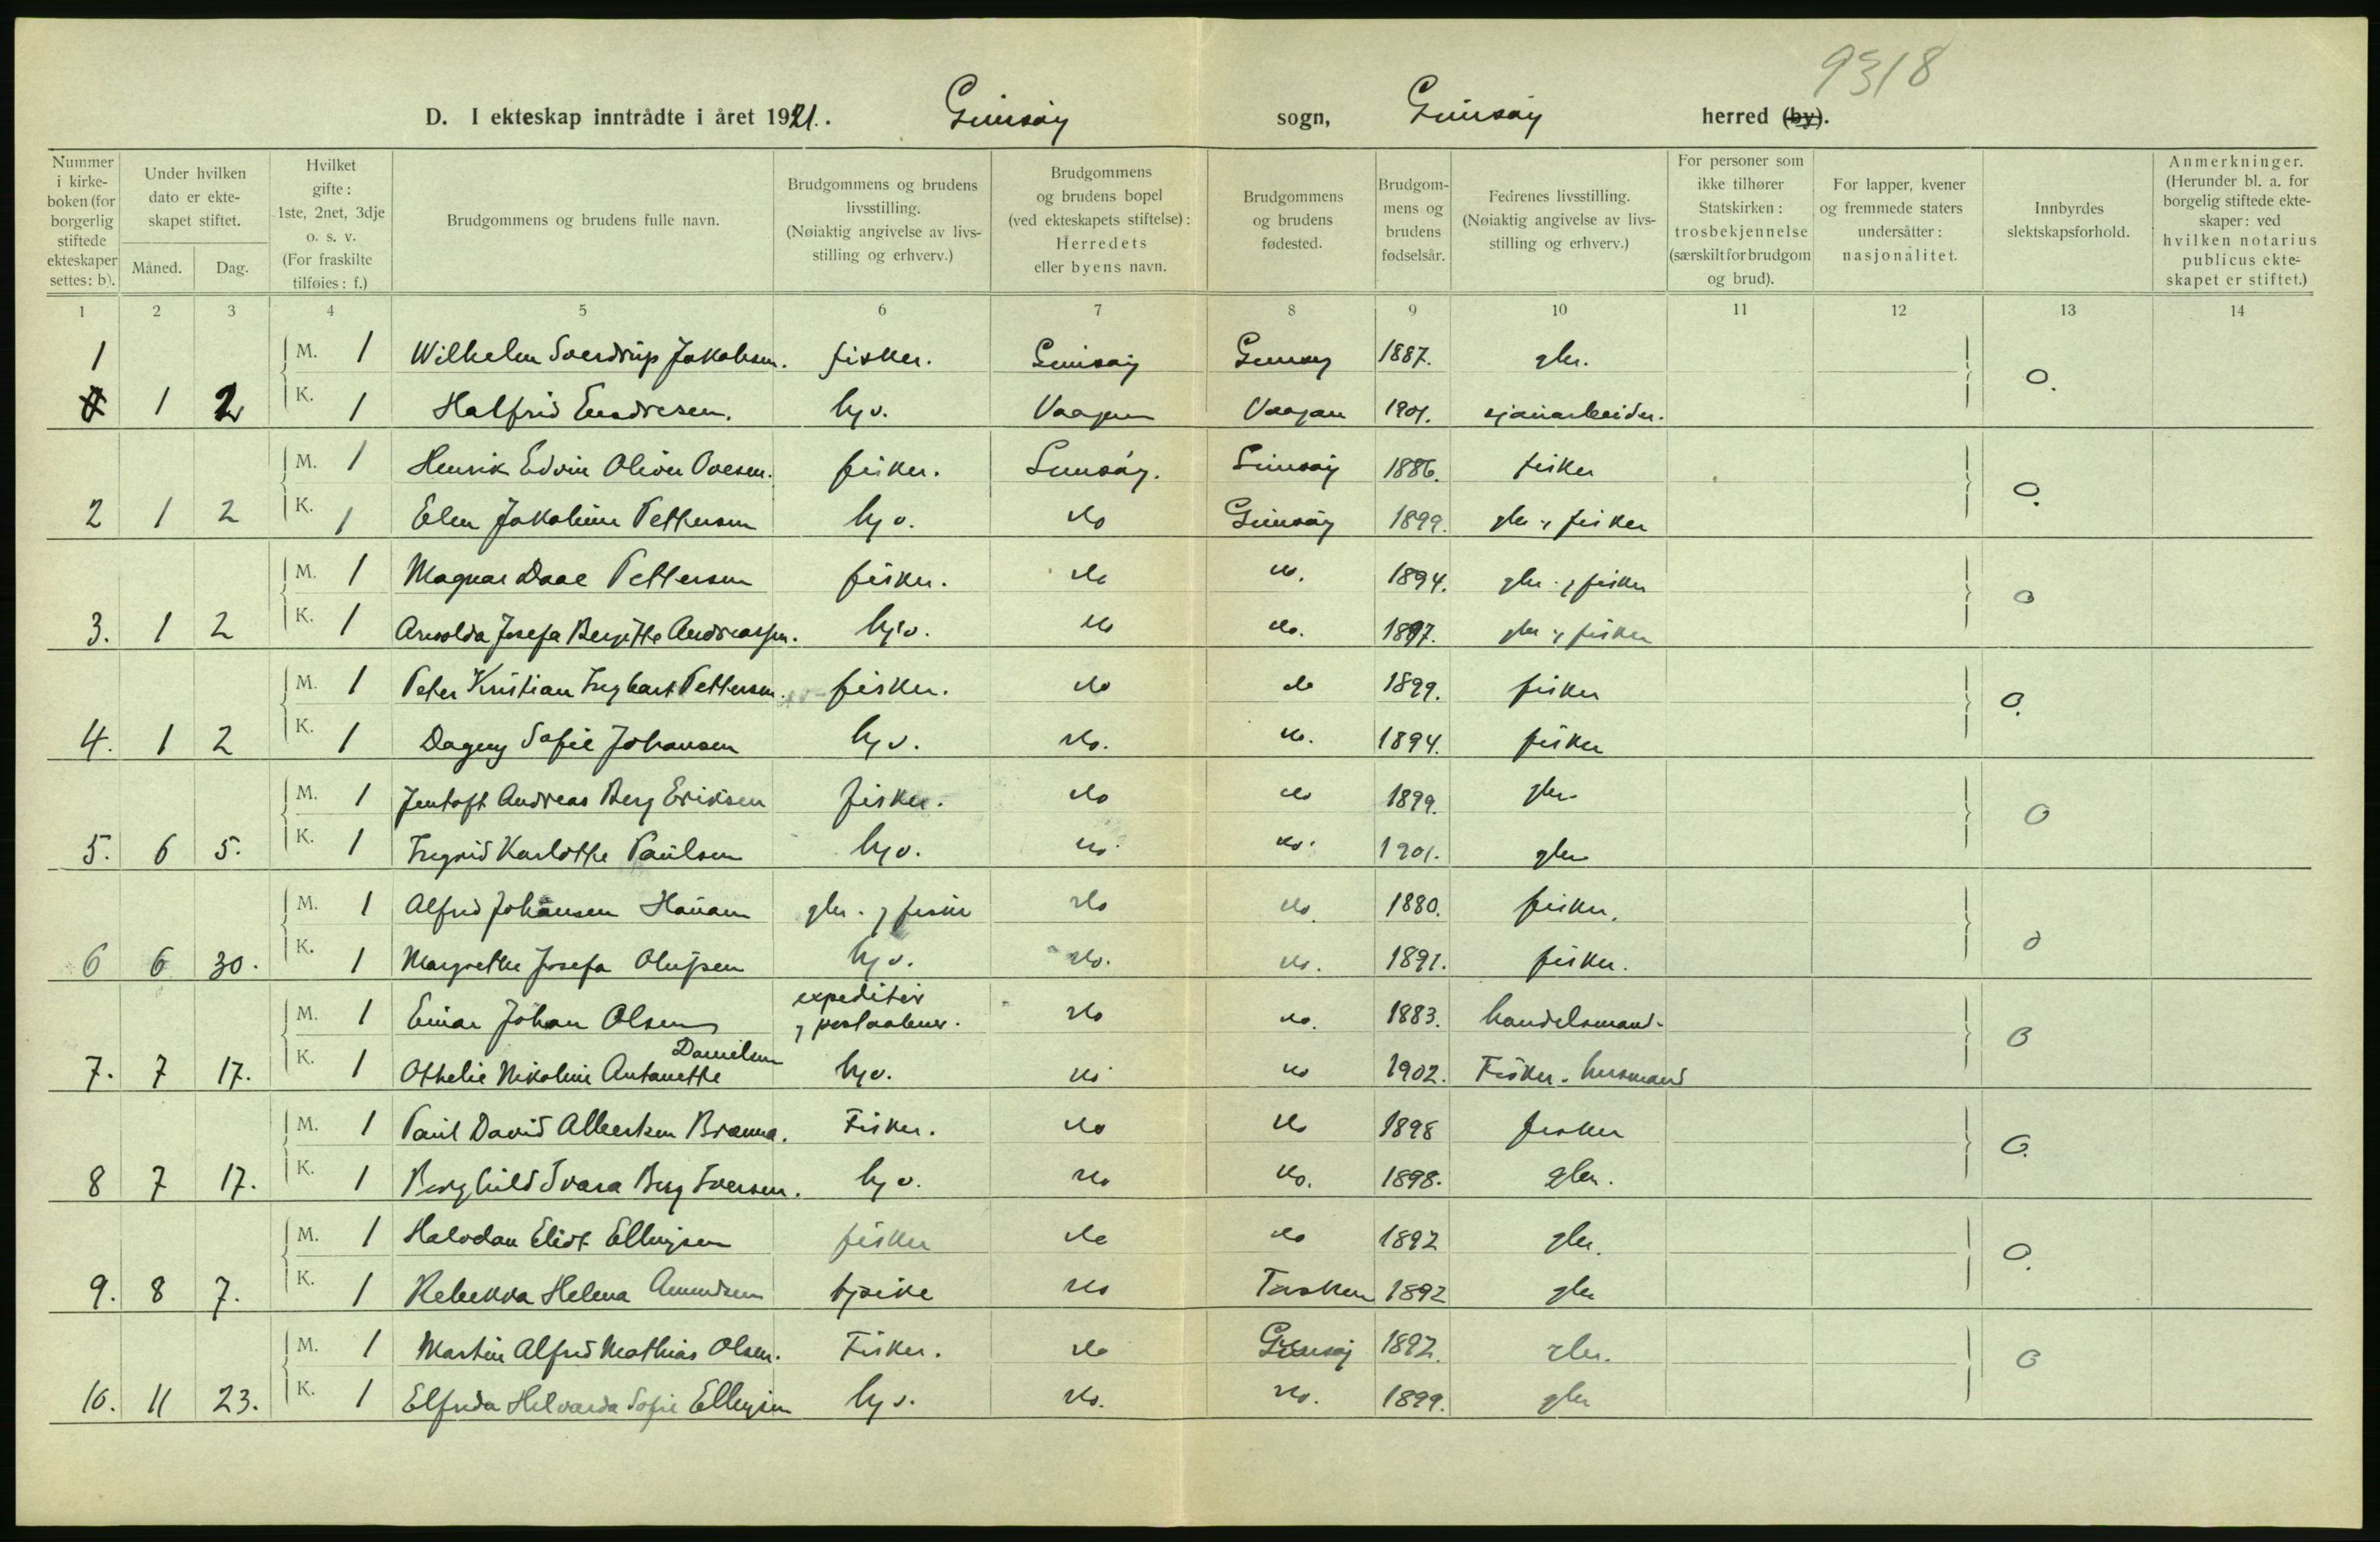 9318
D. I ekteskap inntrådte i året 1921. Gimsøy sogn, Gimsøy herred (by).
Nummer i kirkeboken (for borgerlig stiftede ekteskaper settes: b).
Under hvilken dato er ekteskapet stiftet.
Måned. Dag.
Hvilket gifte: 1ste, 2net, 3dje o. s. v. (For fraskilte tilføies: f.)
Brudgommens og brudens fulle navn.
Brudgommens og brudens livsstilling. (Nøiaktig angivelse av livsstilling og erhverv.)
Brudgommens og brudens bopel (ved ekteskapets stiftelse): Herredets eller byens navn.
Brudgommens og brudens fødested.
Brudgommens og brudens fødselsår.
Fedrenes livsstilling. (Nøiaktig angivelse av livsstilling og erhverv.)
For personer som ikke tilhører Statskirken: trosbekjennelse (særskilt for brudgom og brud).
For lapper, kvener og fremmede staters undersåtter: nasjonalitet.
Innbyrdes slektskapsforhold.
Anmerkninger. (Herunder bl. a. for borgelig stiftede ekteskaper: ved hvilken notarius publicus ekteskapet er stiftet.)
1 2 3 4 5 6 7 8 9 10 11 12 13 14
1 M. 1 Wilhelm Sverdrup Jakobsen. fisker. Gimsøy Gimsøy 1887. gbr. 0.
1 2 K. 1 Halfrid Endresen. hjv. Vaagan Vaagan 1901. sjauarbeider.
M. 1 Henrik Edvin Oliver Ovesen. fisker. Gimsøy. Gimsøy 1886. fisker 0.
2 1 2 K. 1 Elen Jakobine Pettersen hjv. do Gimsøy 1899. gbr & fisker
M. 1 Magnar Daae Pettersen fisker. do do. 1894. gbr. & fisker 0
3. 1 2 K. 1 Arnolda Josefa Bergitte Andreassen. hjv. do do. 1897. gbr & fisker
M. 1 Peter Kristian Ingbart Pettersen. fisker. do do 1899. fisker 0.
4. 1 2 K. 1 Dagny Sofie Johansen hjv. do. do. 1894. fisker
M. 1 Jentoft Andreas Berg Eriksen fisker. do do 1899. gbr 0
5. 6 5. K. 1 Ingrid Karlotte Paulsen hjv. do do. 1901. gbr
M. 1 Alfred Johansen Hanam gbr. & fisker do do. 1880. fisker. 0
6 6 30. K. 1 Margrethe Josefa Olufsen hjv. do. do. 1891. fisker.
M. 1 Einar Johan Olsen expeditør & postaabner. do do. 1883. handelsmand. 0
7. 7 17. K. 1 Othelie Nikoline Antonette Danielsen hjv. do do 1902. Fisker. husmand
M. 1 Paul David Albertsen Brenna. Fisker. do do 1898 fisker 0.
8 7 17. K. 1 Borghild Ivara Berg Iversen. hjv. do do. 1898. gbr.
M. 1 Halvdan Eliot Ellingsen fisker do do 1892 gbr. 0.
9. 8 7. K. 1 Rebekka Helena Amundsen tjeike do Torsken 1892 gbr
M. 1 Martin Alfred Mathias Olsen. Fisker. do Gimsøy 1892. gbr. 0
10. 11 23. K. 1 Elfrida Helvarda Sofie Ellingsen hjv. do. do. 1899. gbr